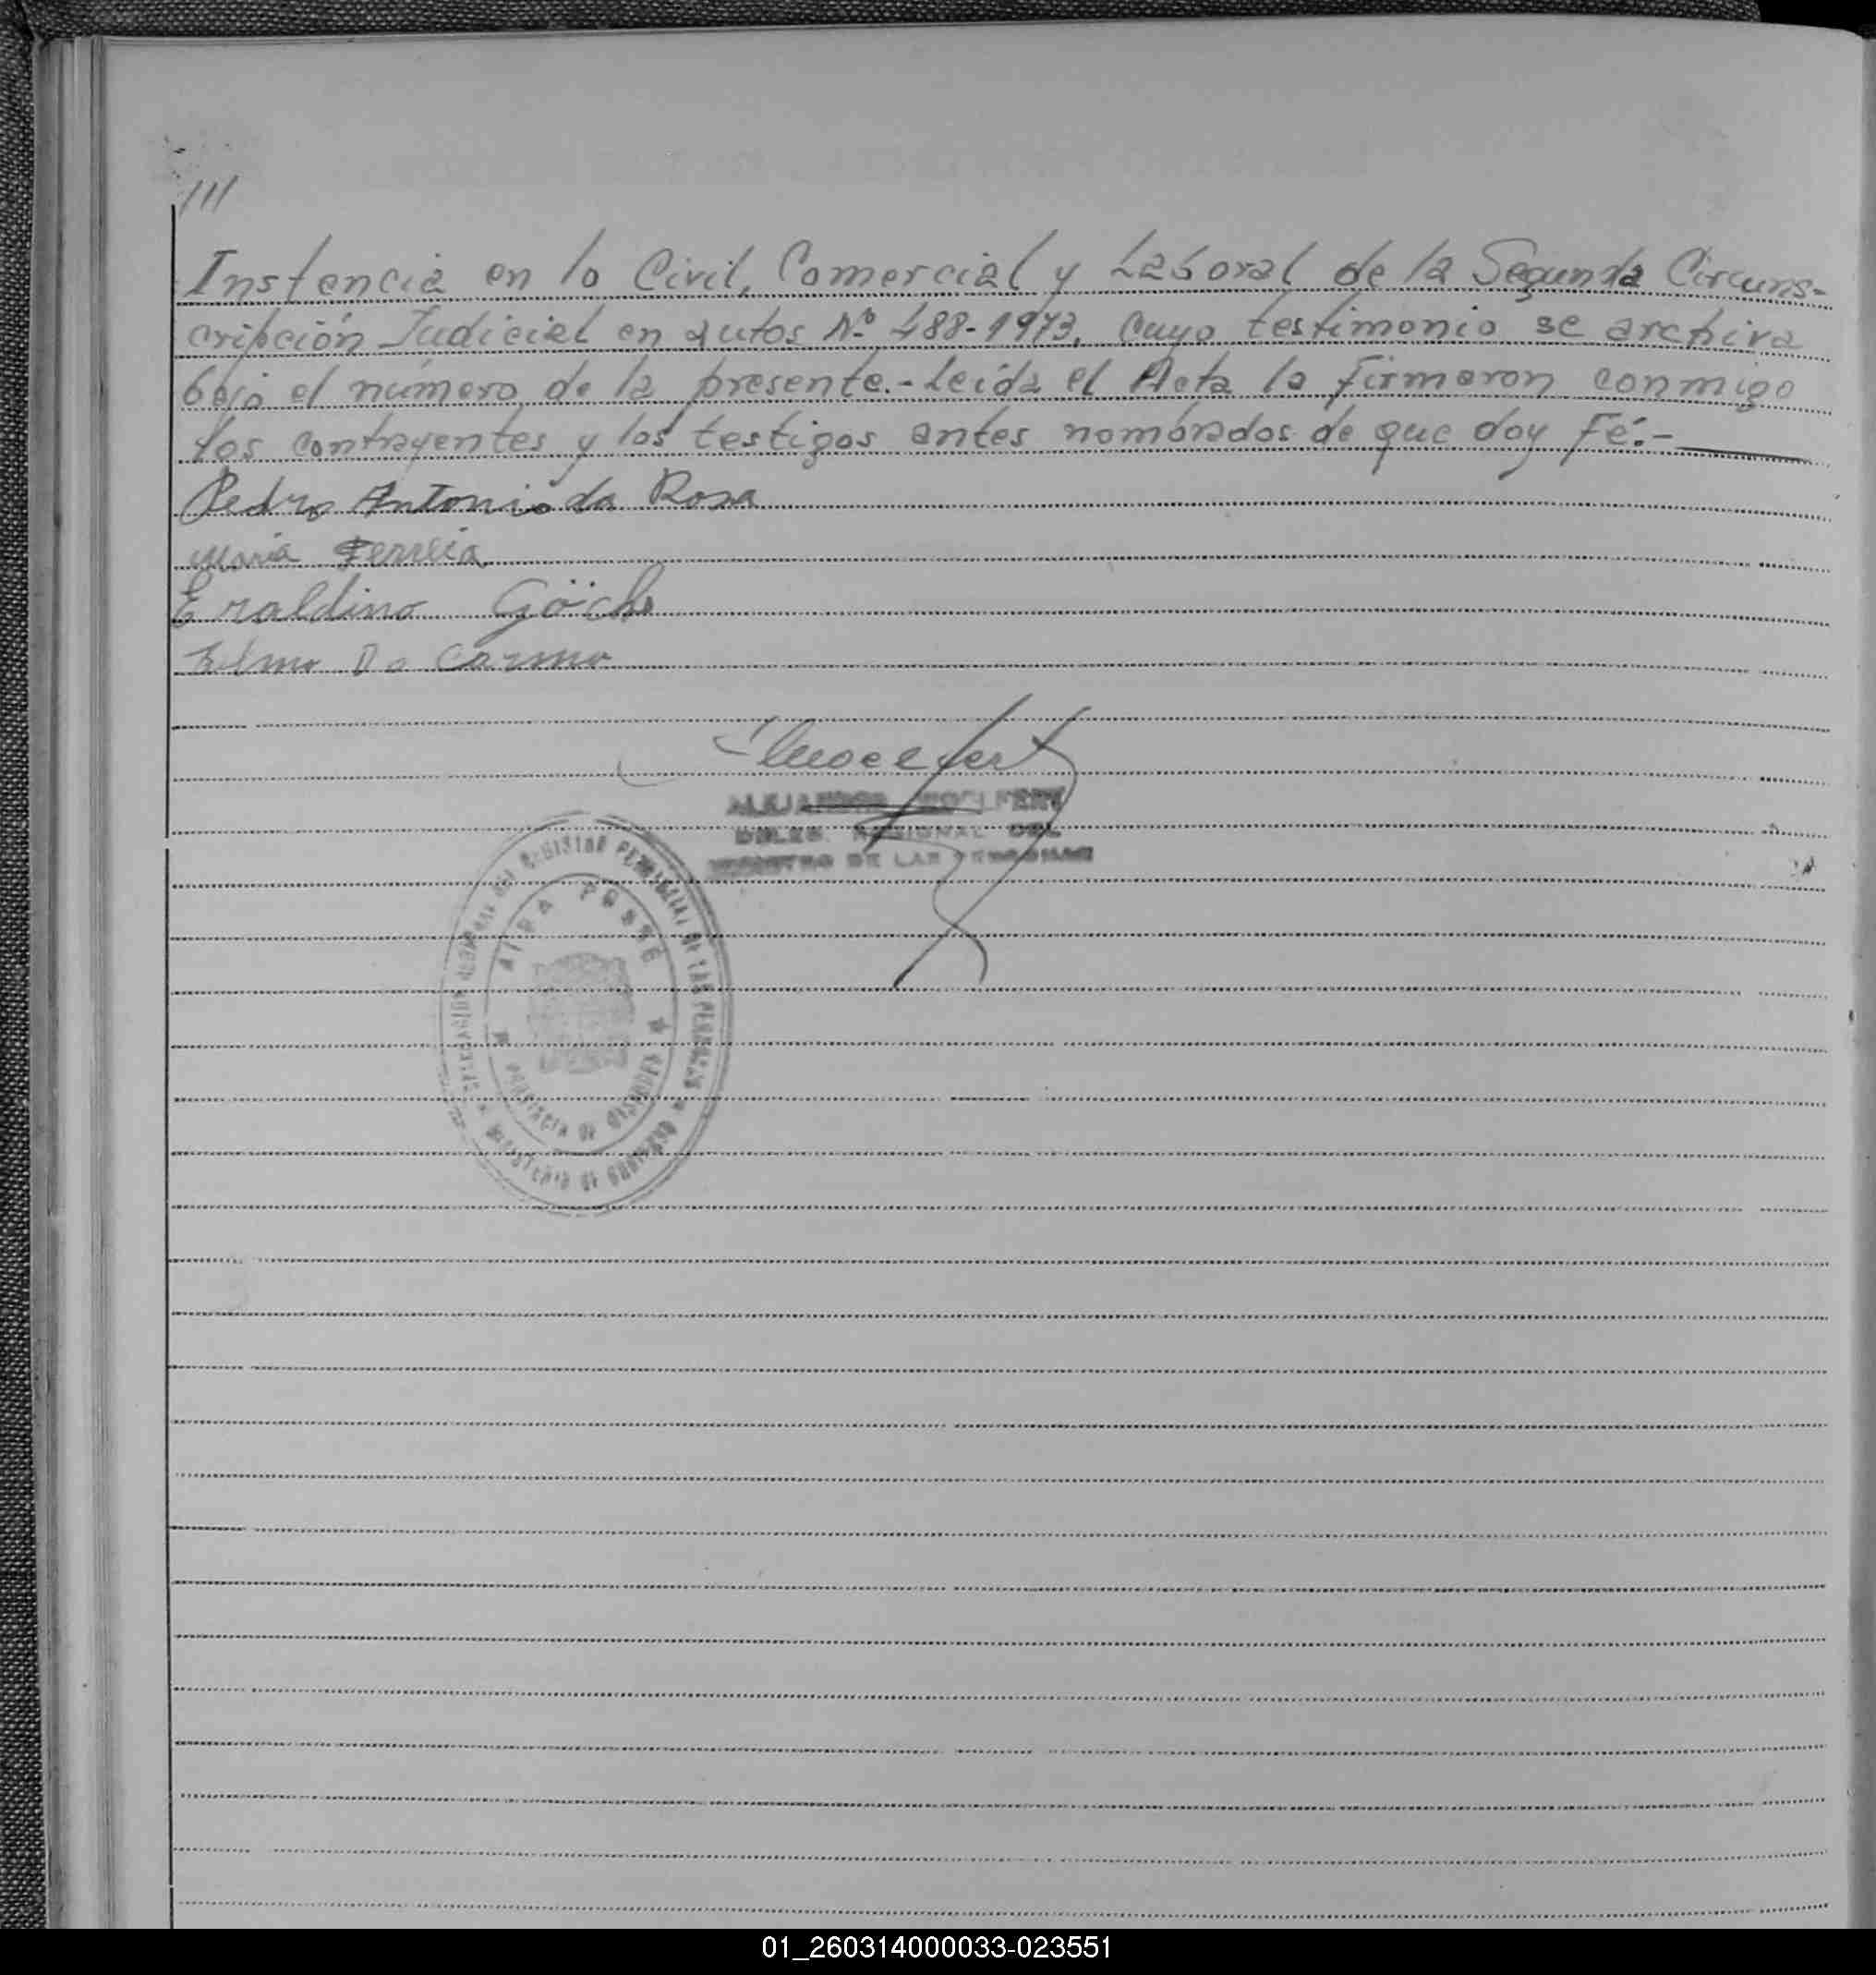 ///
Instencia en lo Civil, Comercial y Laboral de la Segunda Circuns-
cripción Judicial en autos Nº 488-1973, cuyo testimonio se archiva
bajo el número de la presente.- Leída el Acta la firmaron conmigo
los contrayentes y los testigos antes nombrados de que doy Fé.-
Pedro Antonio da Rosa
Maria Ferreia
Eraldino Göch
Telmo Do Carmo
ALEJANDRO WOELFERT
DELEG. REGIONAL DEL
REGISTRO DE LAS PERSONAS
REGISTRO PROVINCIAL DE LAS PERSONAS
MINISTERIO DE GOBIERNO
PROVINCIA DE MISIONES
01_260314000033-023551